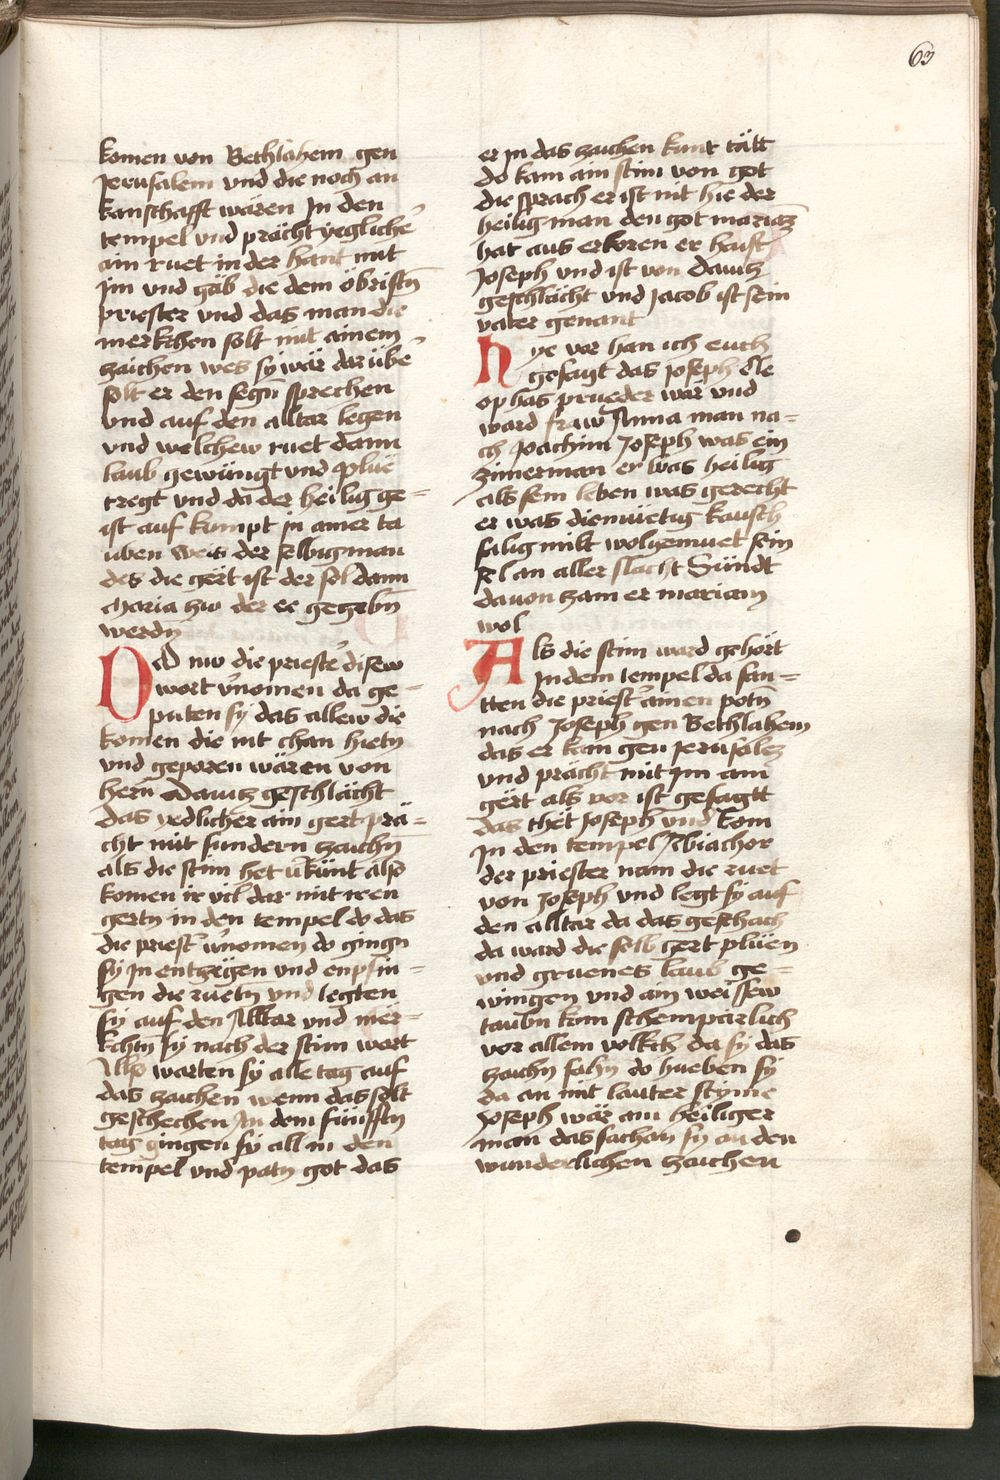 63
komen von Bethlahem gen
Jerusalem vnd die noch an
kanschafft wären In den
tempel vnd prächt yegliche᷑
ain ruet in der hant mit
Im vnd gäb die dem öbristn̄
priester vnd das man die
merkchen solt mit ainem
zaichen wes sy wär darübe᷑
solt er den segn̄ sprechen
vnd auf den alltar legen
vnd welchew ruet dann
laub gewüngt vnd plüe
tregt vnd da der heilig ge=
ist auf kumpt in ainer ta
uben weis der selbig man
des die gert ist der sol dann
Maria zw der ee gegebn̄
werdn̄
Od nw die prieste᷑ disew
wort v᷑nomen da ge=
puten sy das allew die
komen die nit chan hietn
vnd geporen wären von
hern̄ Dauitz geschlächt
das yedlicher ain gert prä=
cht mit sundern zaichn̄
als die stim het v᷑künt also
komen ir vil dar mit iren
gertn in den tempel do das
die priest᷑ v᷑nomen do gingn
sy In entgegen vnd enpfin=
gen die ruetn̄ vnd legten
sy auf den Alltar vnd mer=
kchtn̄ sy nach der stim wort
Also warten sy alle tag auf
das zaichen wenn das solt
geschechen An dem fünfftn
tag gingen sy all in den
tempel vnd patn got das
er In das zaichen kunt tätt
do kam ain stim von got
die sprach er ist nit hie der
heilig man den got mariaz
hat aus erkoren er haist
Joseph vnd ist von Dauitz
geschlächt vnd Jacob ist sein
vater genant
hye vor han ich euch
gesagt das Joseph Cle
ophas prueder wär vnd
ward fraw Anna man na=
ch Joachim Joseph was ein
zimerman er was heilig
als sein leben was gerecht
er was diemüetig kausch
sälig milt wolgemuet sein
sel an aller slacht Sündt
dauon zam er mariam
wol
Als die stim ward gehört
In dem tempel da san=
tten die priest᷑ ainen potn̄
nach Joseph gen Bethlahem
das er kam gen Jerusalez
vnd prächt mit Im ain
gert als vor ist gesagtt
das thet Joseph vnd kom
In den tempel Abiachor
der priester nam die ruet
von Joseph vnd legt sy auf
den alltar da das geschach
da ward die selb gert plüen
vnd gruenes laub ge=
wingen vnd ain weissew
taubn kam schempärlich
vor allem volkch da sy das
zaichn sahn do hueben sy
da an mit lauter styme
Joseph wär ain heiliger
man das sachen sy an den
wunderlichen zaichen